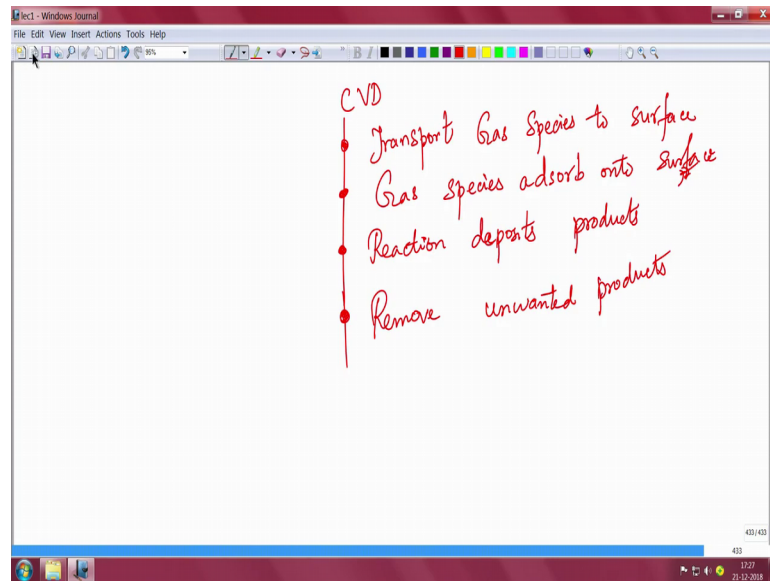 lec1 - Windows Journal
File Edit View Insert Actions Tools Help
96%
CVD
Transport Gas Species to surface
Gas species adsorb onto surface
Reaction deposits products
Remove unwanted products
433/433
433
17:27
21-12-2018